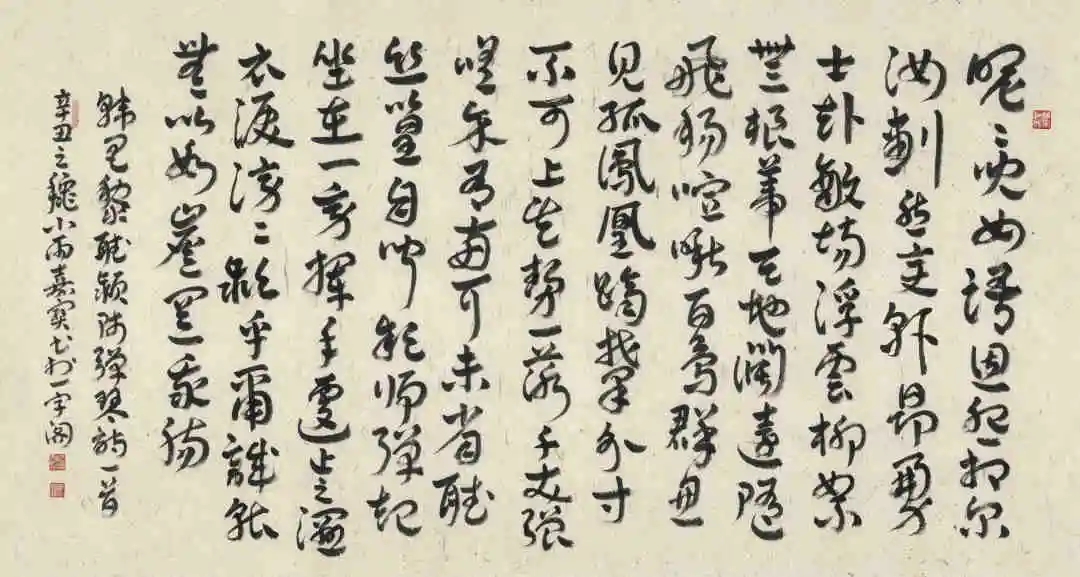 昵〻兒女語恩怨相尔
汝劃然變軒昂勇
士赴敵場浮雲柳絮
無根蒂天地闊遠隨
飛揚喧啾百鳥群忽
見孤鳳凰躋攀分寸
不可上失勢一落千丈強
嗟余有兩耳未省聽
絲篁自聞穎師彈起
坐在一旁推手遽止之濕
衣淚滂〻穎乎爾誠能
無以冰炭置我腸
韓昌黎聽穎師彈琴詩一首
辛丑之穐小雨嘉寶書於一字閣